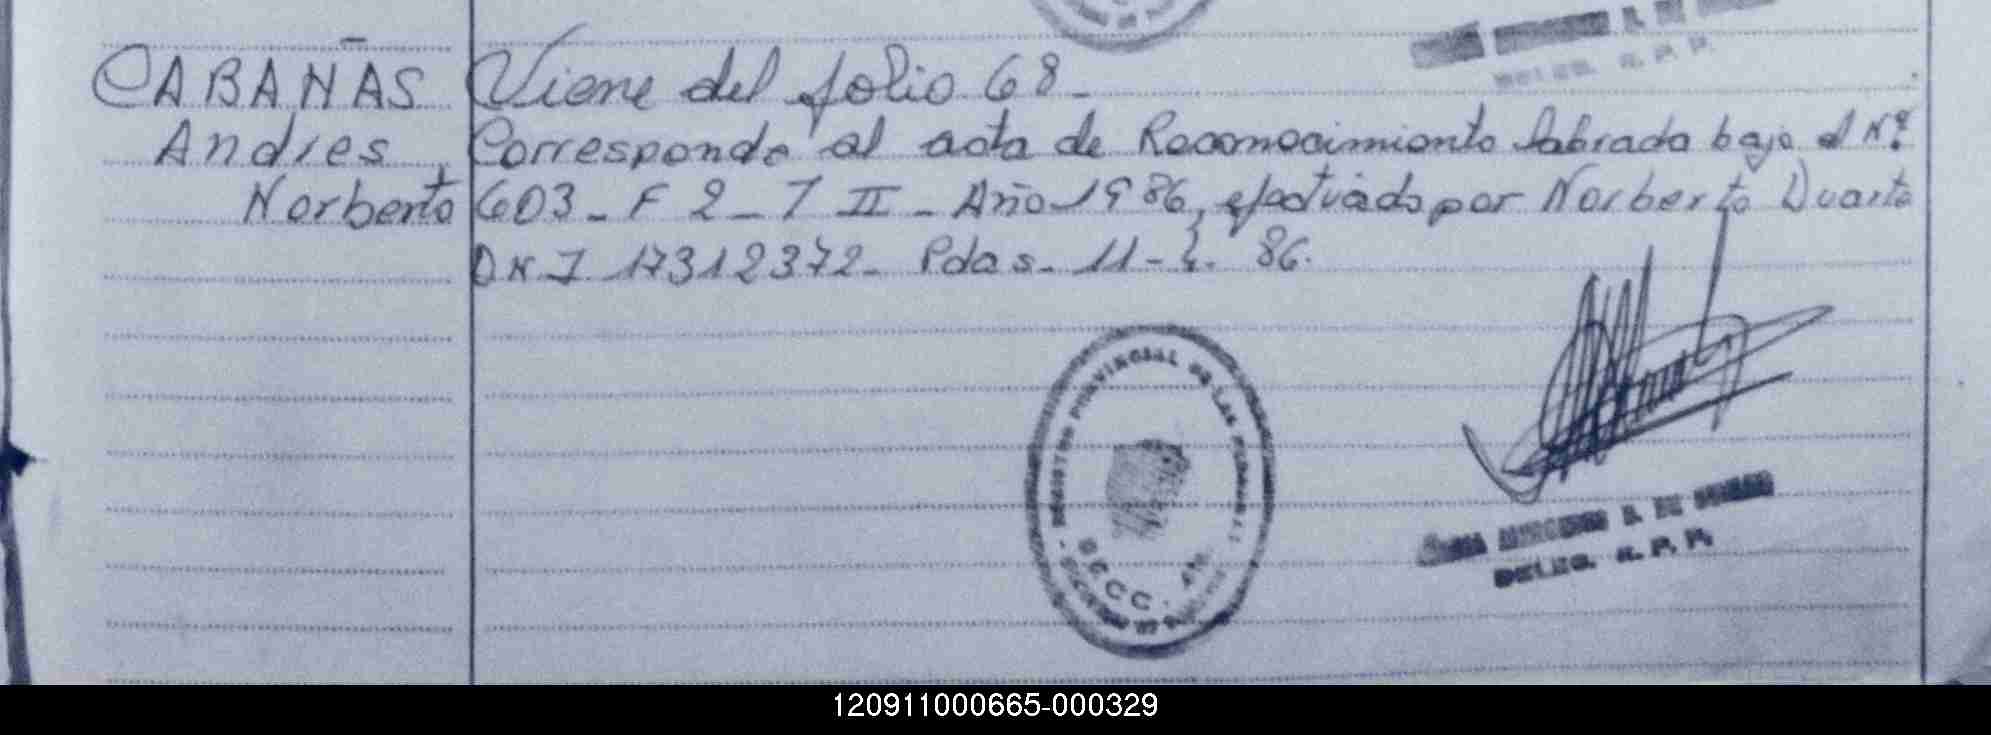 CABAÑAS Viene del folio 68-
Andres Corresponde al acta de Reconocimiento labrada bajo el Nº
Norberto 603- F 2- T II- Año 1986, efectuado por Norberto Duarte
DNI 17312372- Pdas- 11- 86.
REGISTRO PROVINCIAL DE LAS PERSONAS
SECC.
DELEG. R. P. P.
120911000665-000329